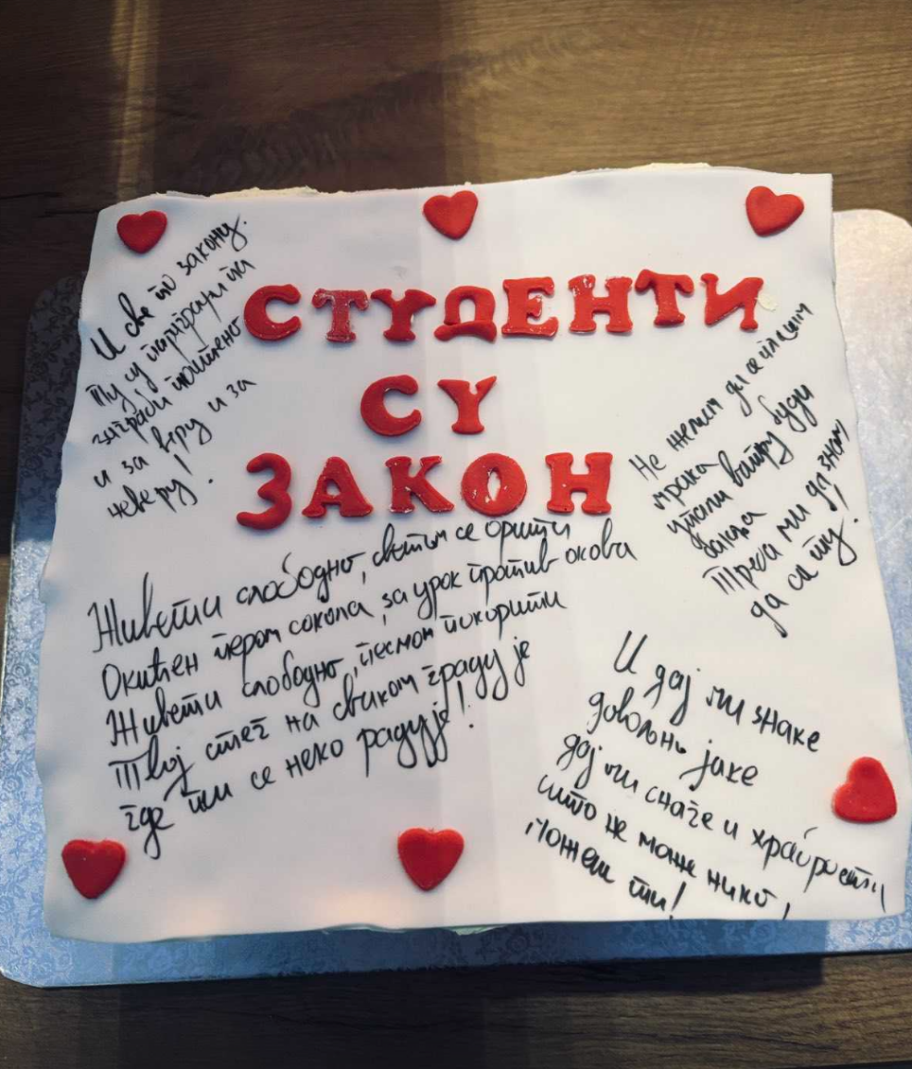 СТУДЕНТИ
СУ
ЗАКОН
И све по закону.
Ту су параграфи па
заграби поштено
и за веру и за
неверу!
Не желим да се плашим
мрака
упали ватру буди
бакља
Треба ми да знам
да си ту!
Живети слободно, светом се орити
Окићен пером сокола, за урок против окова
Живети слободно, песмом покорити
Твој стег на сваком граду је
где ти се неко радује!
И дај ми знаке
довољно јаке
дај ми снаге и храбрости,
што не може нико,
можеш ти!